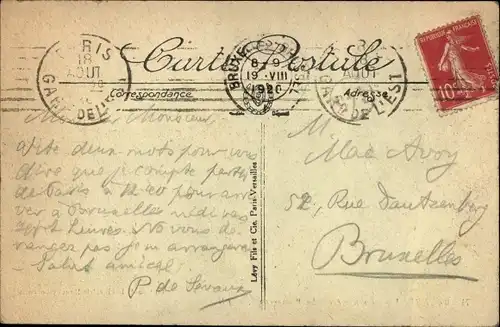 PARIS
18
AOUT
GARE DE L'EST
Carte Postale
BRUXE
8 - 9
19 - VIII
1920
AOUT
GARE DE L'EST
REPUBLIQUE FRANÇAISE
10
Correspondance
Adresse
Monsieur,
deux mots pour vous
dire que je compte partir
de Paris à pour arri
ver à Bruxelles
sept heures. Ne vous dé
rangez pas je m'arrangerai
Salut amical
P. de
Lévy Fils et Cie, Paris-Versailles
Mr
Mac Avoy
52, Rue Dautzenberg
Bruxelles